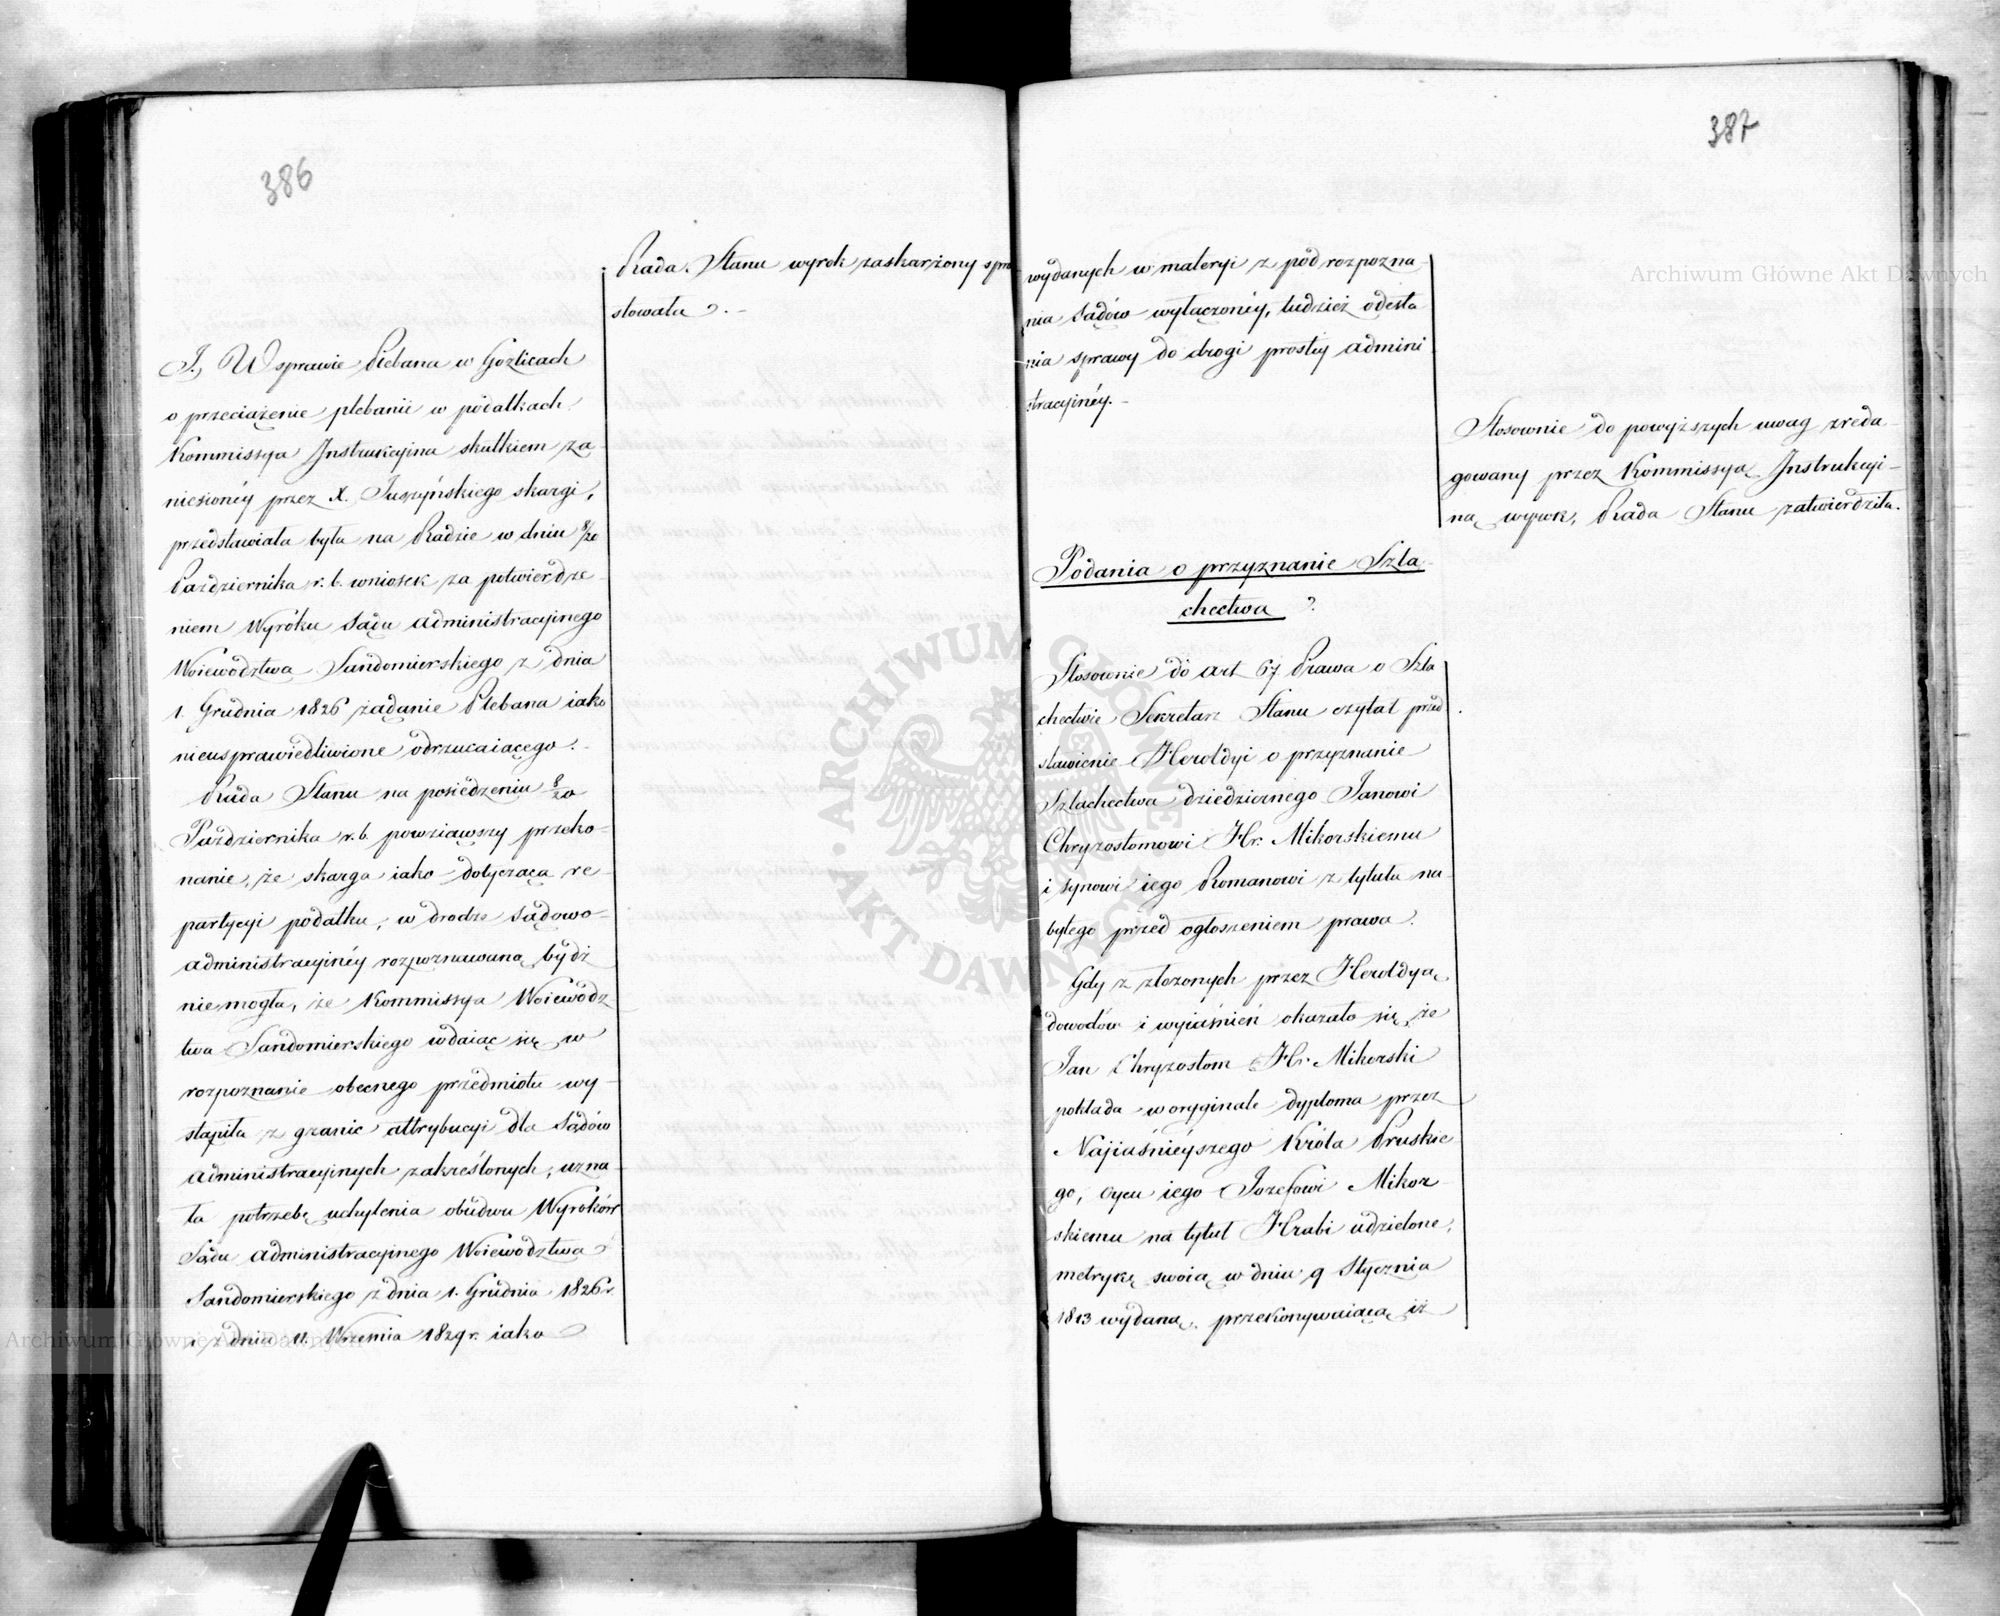 386
Rada Stanu wyrok zaskarżony spro
stowała.-
J, W sprawie Plebana w Gozlicach
o przeciążenie plebanii w podatkach
Kommissya Instrukcyina skutkiem za
niesionéy przez X. Juszyńskiego skargi,
przedstawiała była na Radzie w dniu 8/20
Października r. b. wniosek za potwierdze
niem Wyroku Sądu administracyinego
Woiewództwa Sandomierskiego z dnia
1. Grudnia 1826 żądanie Plebana iako
nieusprawiedliwione odrzucaiącego.-
Rada Stanu na posiedzeniu 8/20
Października r. b. powziąwszy przeko-
nanie, że skarga iako dotycząca re-
partycyi podatku, w drodze sądowo-
administracyinéy rozpoznawaną bydź
nie mogła, że Kommissya Woiewódz
twa Sandomierskiego wdaiąc się w
rozpoznanie obecnego przedmiotu wy-
stąpiła z granic attrybucyi dla Sądów
administracyinych zakreślonych, uzna-
ła potrzebę uchylenia obudwu Wyroków
Sądu administracyinego Woiewództwa
Sandomierskiego z dnia 1. Grudnia 1826 r.
i z dnia 11. Września 1829 r. iako
387
wydanych w materyi z pod rozpozna-
nia Sądów wyłączonéy, tudzież odesła
nia sprawy do drogi prostéy admini
stracyinéy.-
Stosownie do powyższych uwag zreda-
gowany przez Kommissyą Instrukcyi-
ną wyrok, Rada Stanu zatwierdziła.
Podania o przyznanie Szla-
chectwa
Stosownie do art 67 Prawa o Szla
chectwie Sekretarz Stanu czytał przed
stawienie Heroldyi o przyznanie
Szlachectwa dziedzicznego Janowi
Chryzostomowi Hr. Mikorskiemu
i synowi iego Romanowi z tytułu na-
bytego przed ogłoszeniem prawa.
Gdy z złożonych przez Heroldyą
dowodów i wyiaśnień okazało się, że
Jan Chryzostom Hr. Mikorski
pokłada w oryginale dyploma przez
Najiaśnieyszego Króla Pruskie
go, oycu iego Jozefowi Mikor-
skiemu na tytuł Hrabi udzielone,
metrykę swoią w dniu 9 Stycznia
1813 wydaną, przekonywaiącą iż
Archiwum Główne Akt Dawnych
ARCHIWUM GŁÓWNE · AKT DAWNYCH ·
Archiwum Główne Akt Dawnych